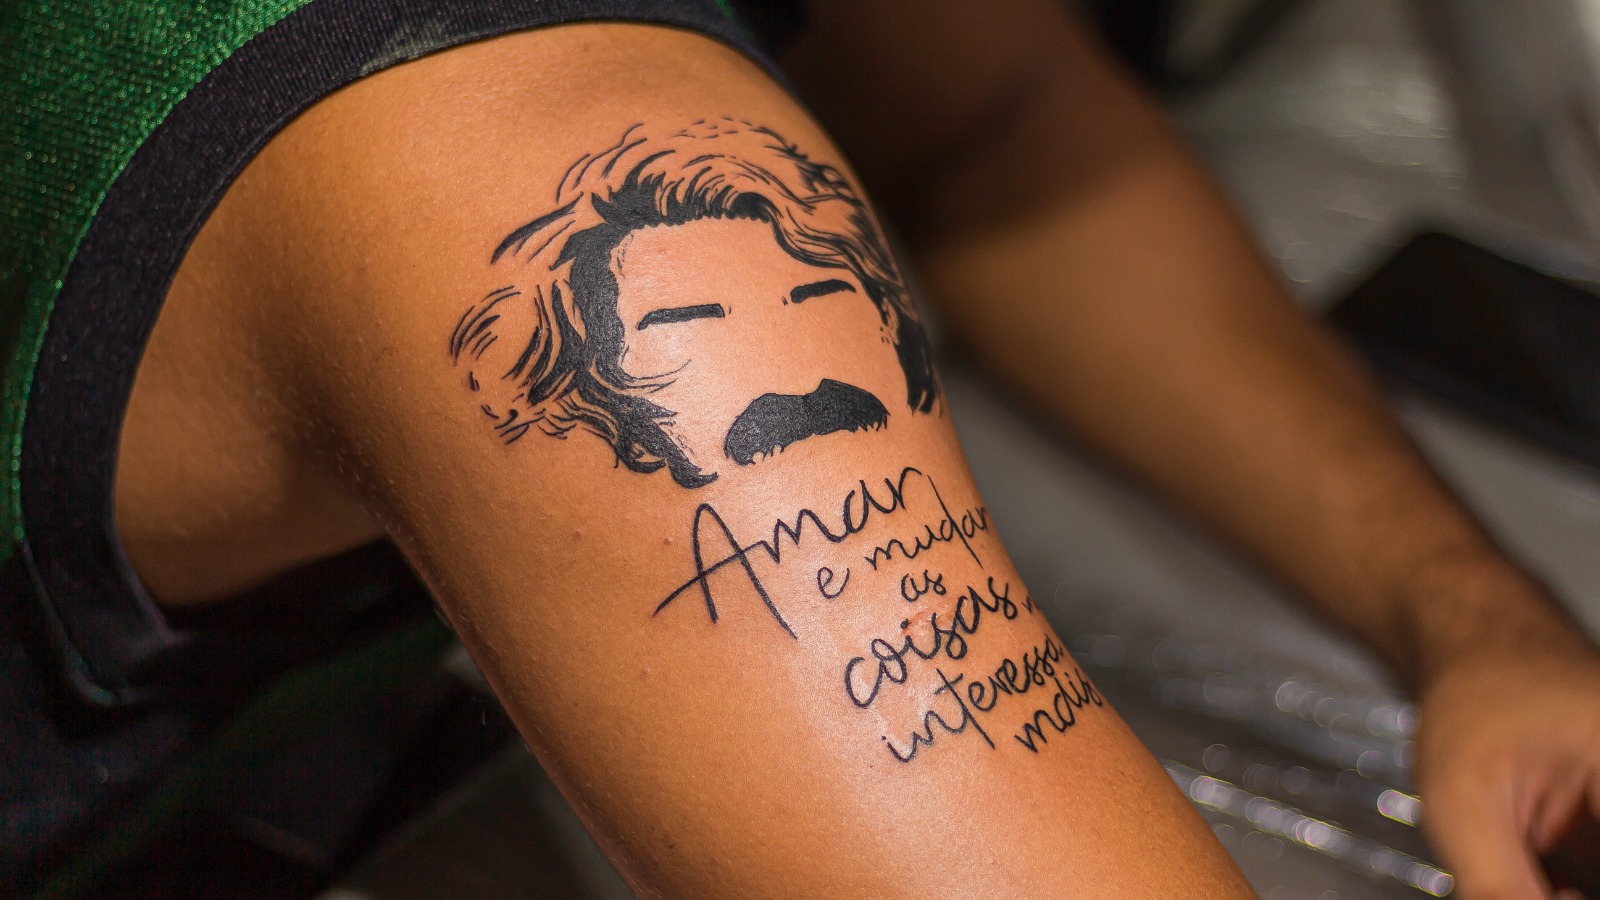 Amar
e mudar
as
coisas
interessa
mais